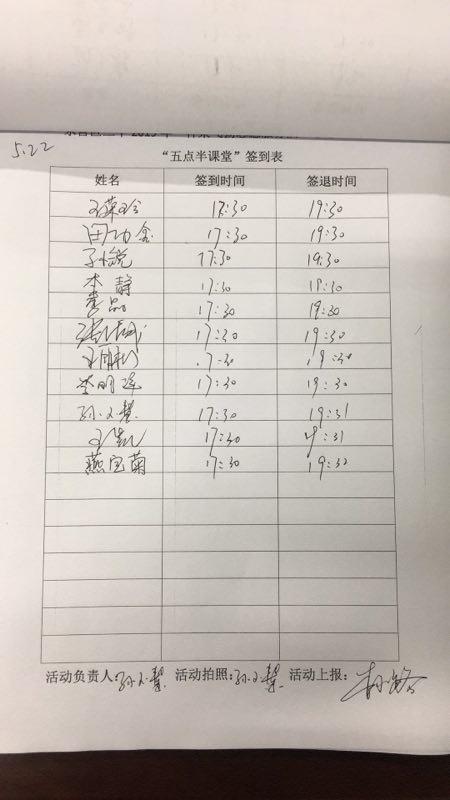 5.22
“五点半课堂”签到表
姓名 签到时间 签退时间
17:30 19:30
田功鑫 17:30 19:30
17:30 19:30
李静 17:30 18:30
娄品 17:30 19:30
17:30 19:30
17:30 19:30
李明连 17:30 19:30
孙文慧 17:30 19:31
17:30 19:31
燕宝菊 17:30 19:32
活动负责人:孙文慧 活动拍照:孙文慧 活动上报: